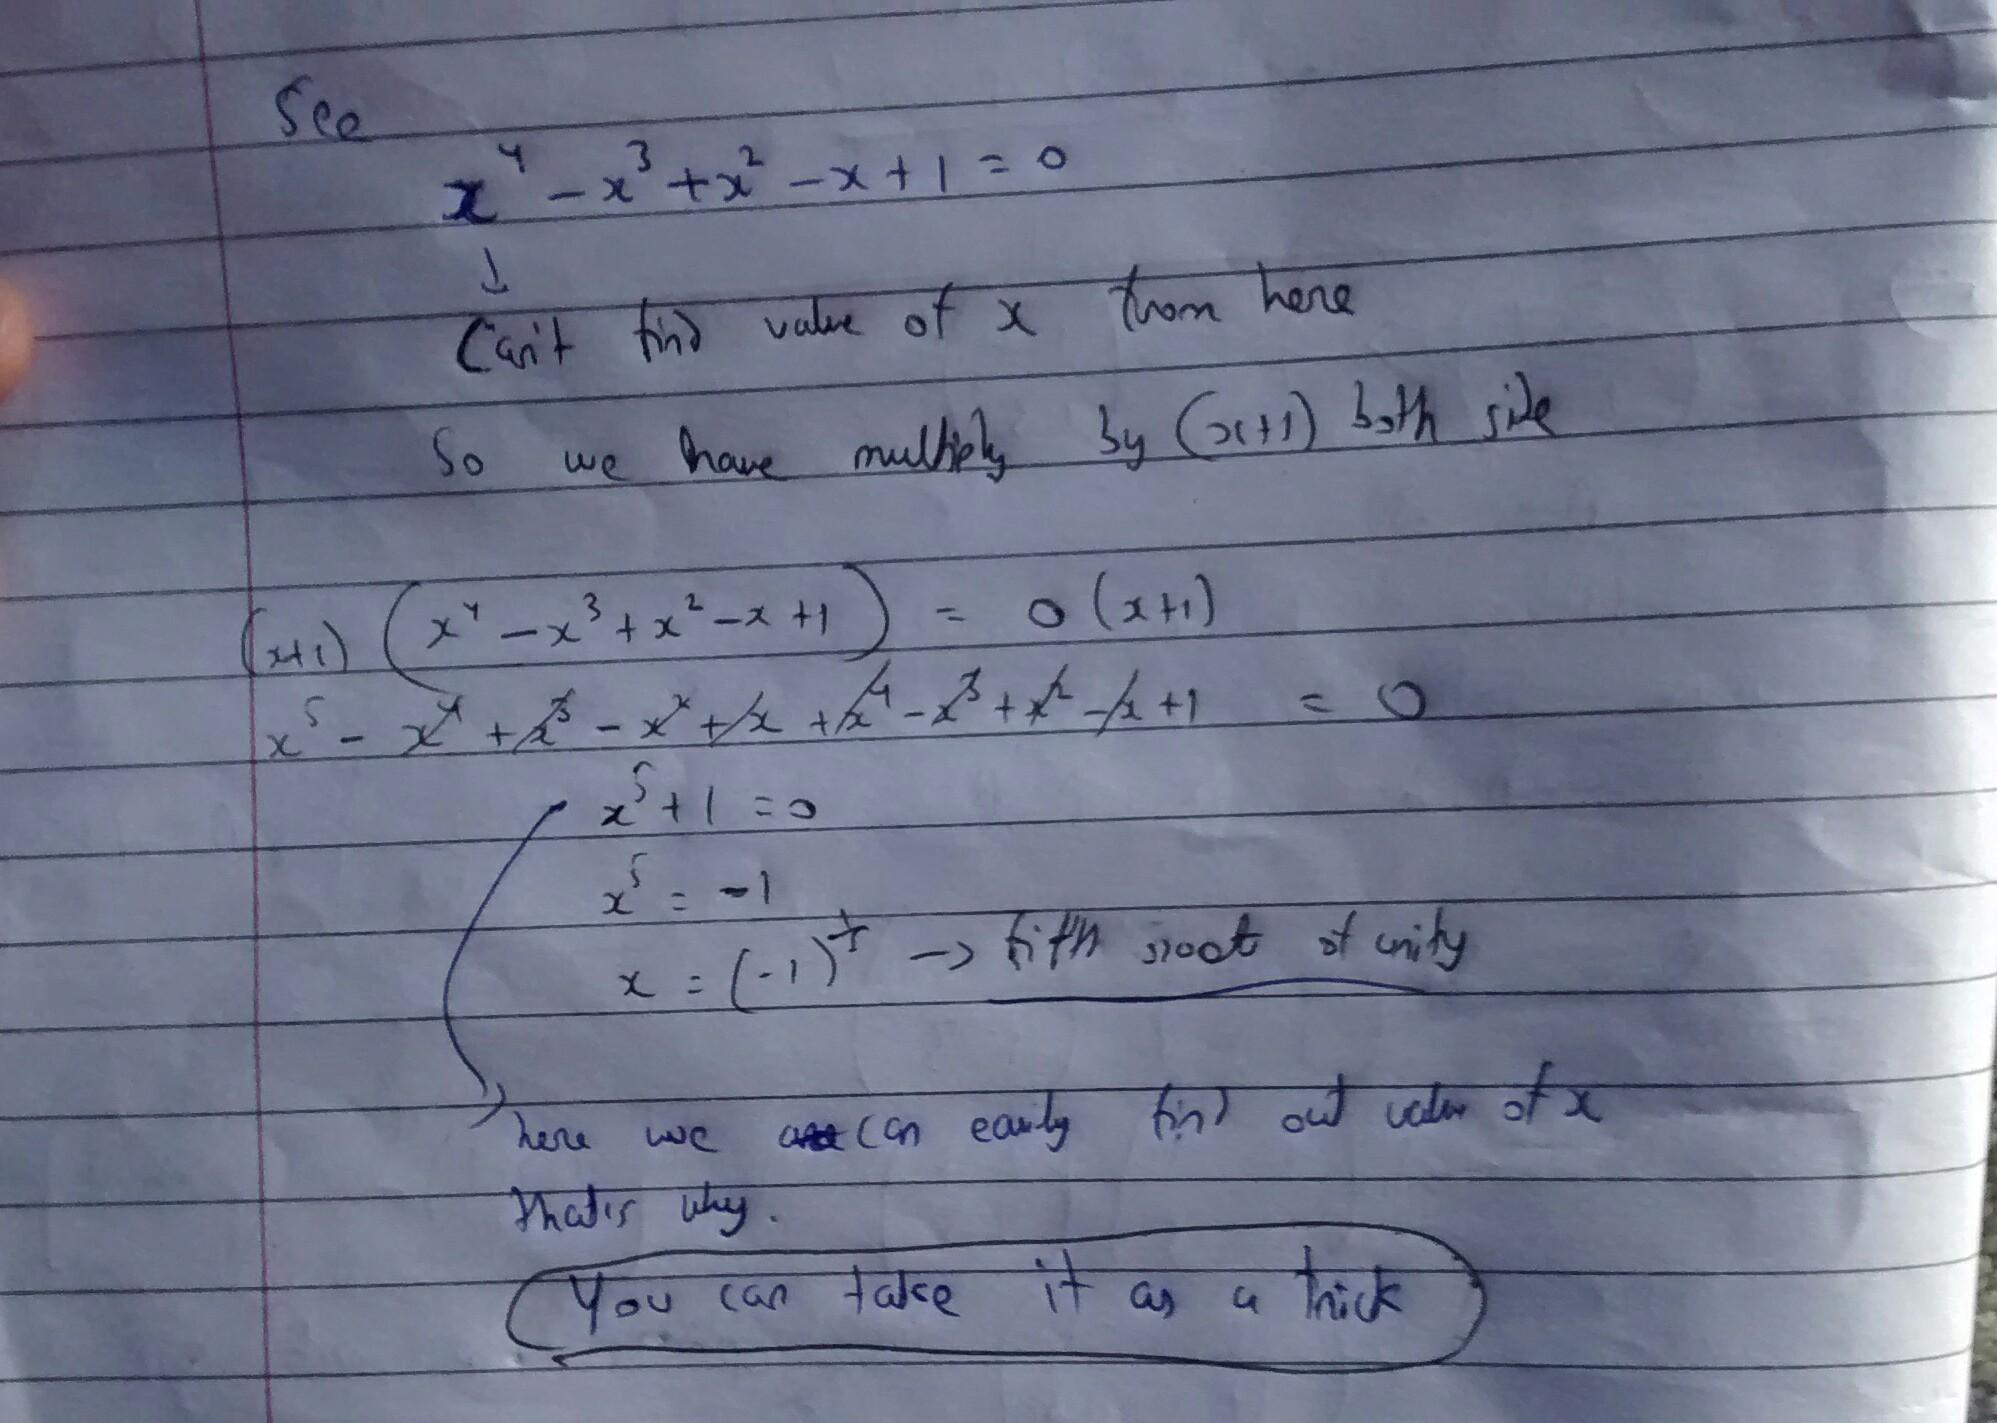 See
x⁴ - x³ + x² - x + 1 = 0
↓
Can't find value of x from here
So we have multiply by (x+1) both side
(x+1) (x⁴ - x³ + x² - x + 1) = 0 (x+1)
x⁵ - x⁴ + x³ - x² + x + x⁴ - x³ + x² - x + 1 = 0
x⁵ + 1 = 0
x⁵ = -1
x = (-1)^(1/5) → fifth root of unity
here we can easily find out value of x
that's why.
You can take it as a trick